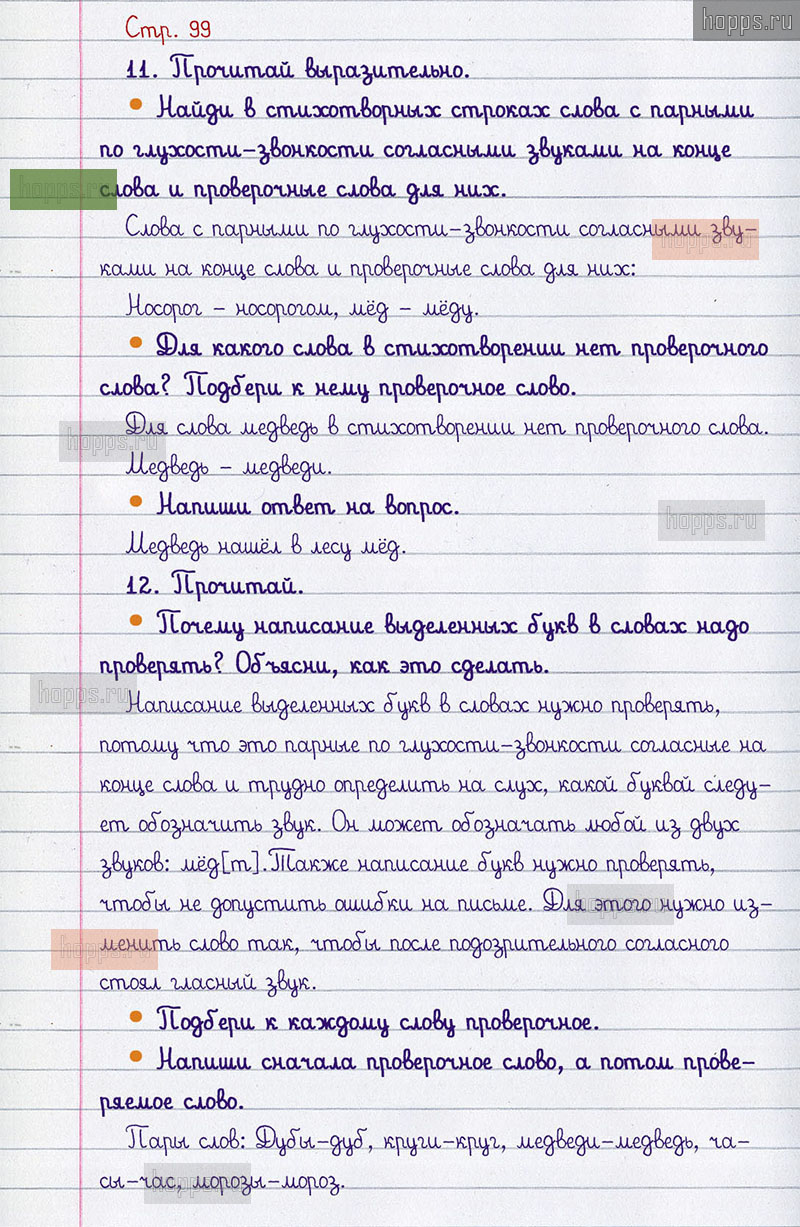 hopps.ru
Стр. 99
11. Прочитай выразительно.
• Найди в стихотворных строках слова с парными
по глухости-звонкости согласными звуками на конце
слова и проверочные слова для них.
hopps.ru
Слова с парными по глухости-звонкости согласными зву-
hopps.ru
ками на конце слова и проверочные слова для них:
Носорог - носорогом, мёд - мёду.
• Для какого слова в стихотворении нет проверочного
слова? Подбери к нему проверочное слово.
Для слова медведь в стихотворении нет проверочного слова.
hopps.ru
Медведь - медведи.
• Напиши ответ на вопрос.
hopps.ru
Медведь нашёл в лесу мёд.
12. Прочитай.
• Почему написание выделенных букв в словах надо
проверять? Объясни, как это сделать.
hopps.ru
Написание выделенных букв в словах нужно проверять,
потому что это парные по глухости-звонкости согласные на
конце слова и трудно определить на слух, какой буквой следу-
ет обозначить звук. Он может обозначать любой из двух
звуков: мёд[т]. Также написание букв нужно проверять,
чтобы не допустить ошибки на письме. Для этого нужно из-
hopps.ru
менить слово так, чтобы после подозрительного согласного
hopps.ru
стоял гласный звук.
• Подбери к каждому слову проверочное.
• Напиши сначала проверочное слово, а потом прове-
ряемое слово.
Пары слов: Дубы-дуб, круги-круг, медведи-медведь, ча-
сы-час, морозы-мороз.
hopps.ru